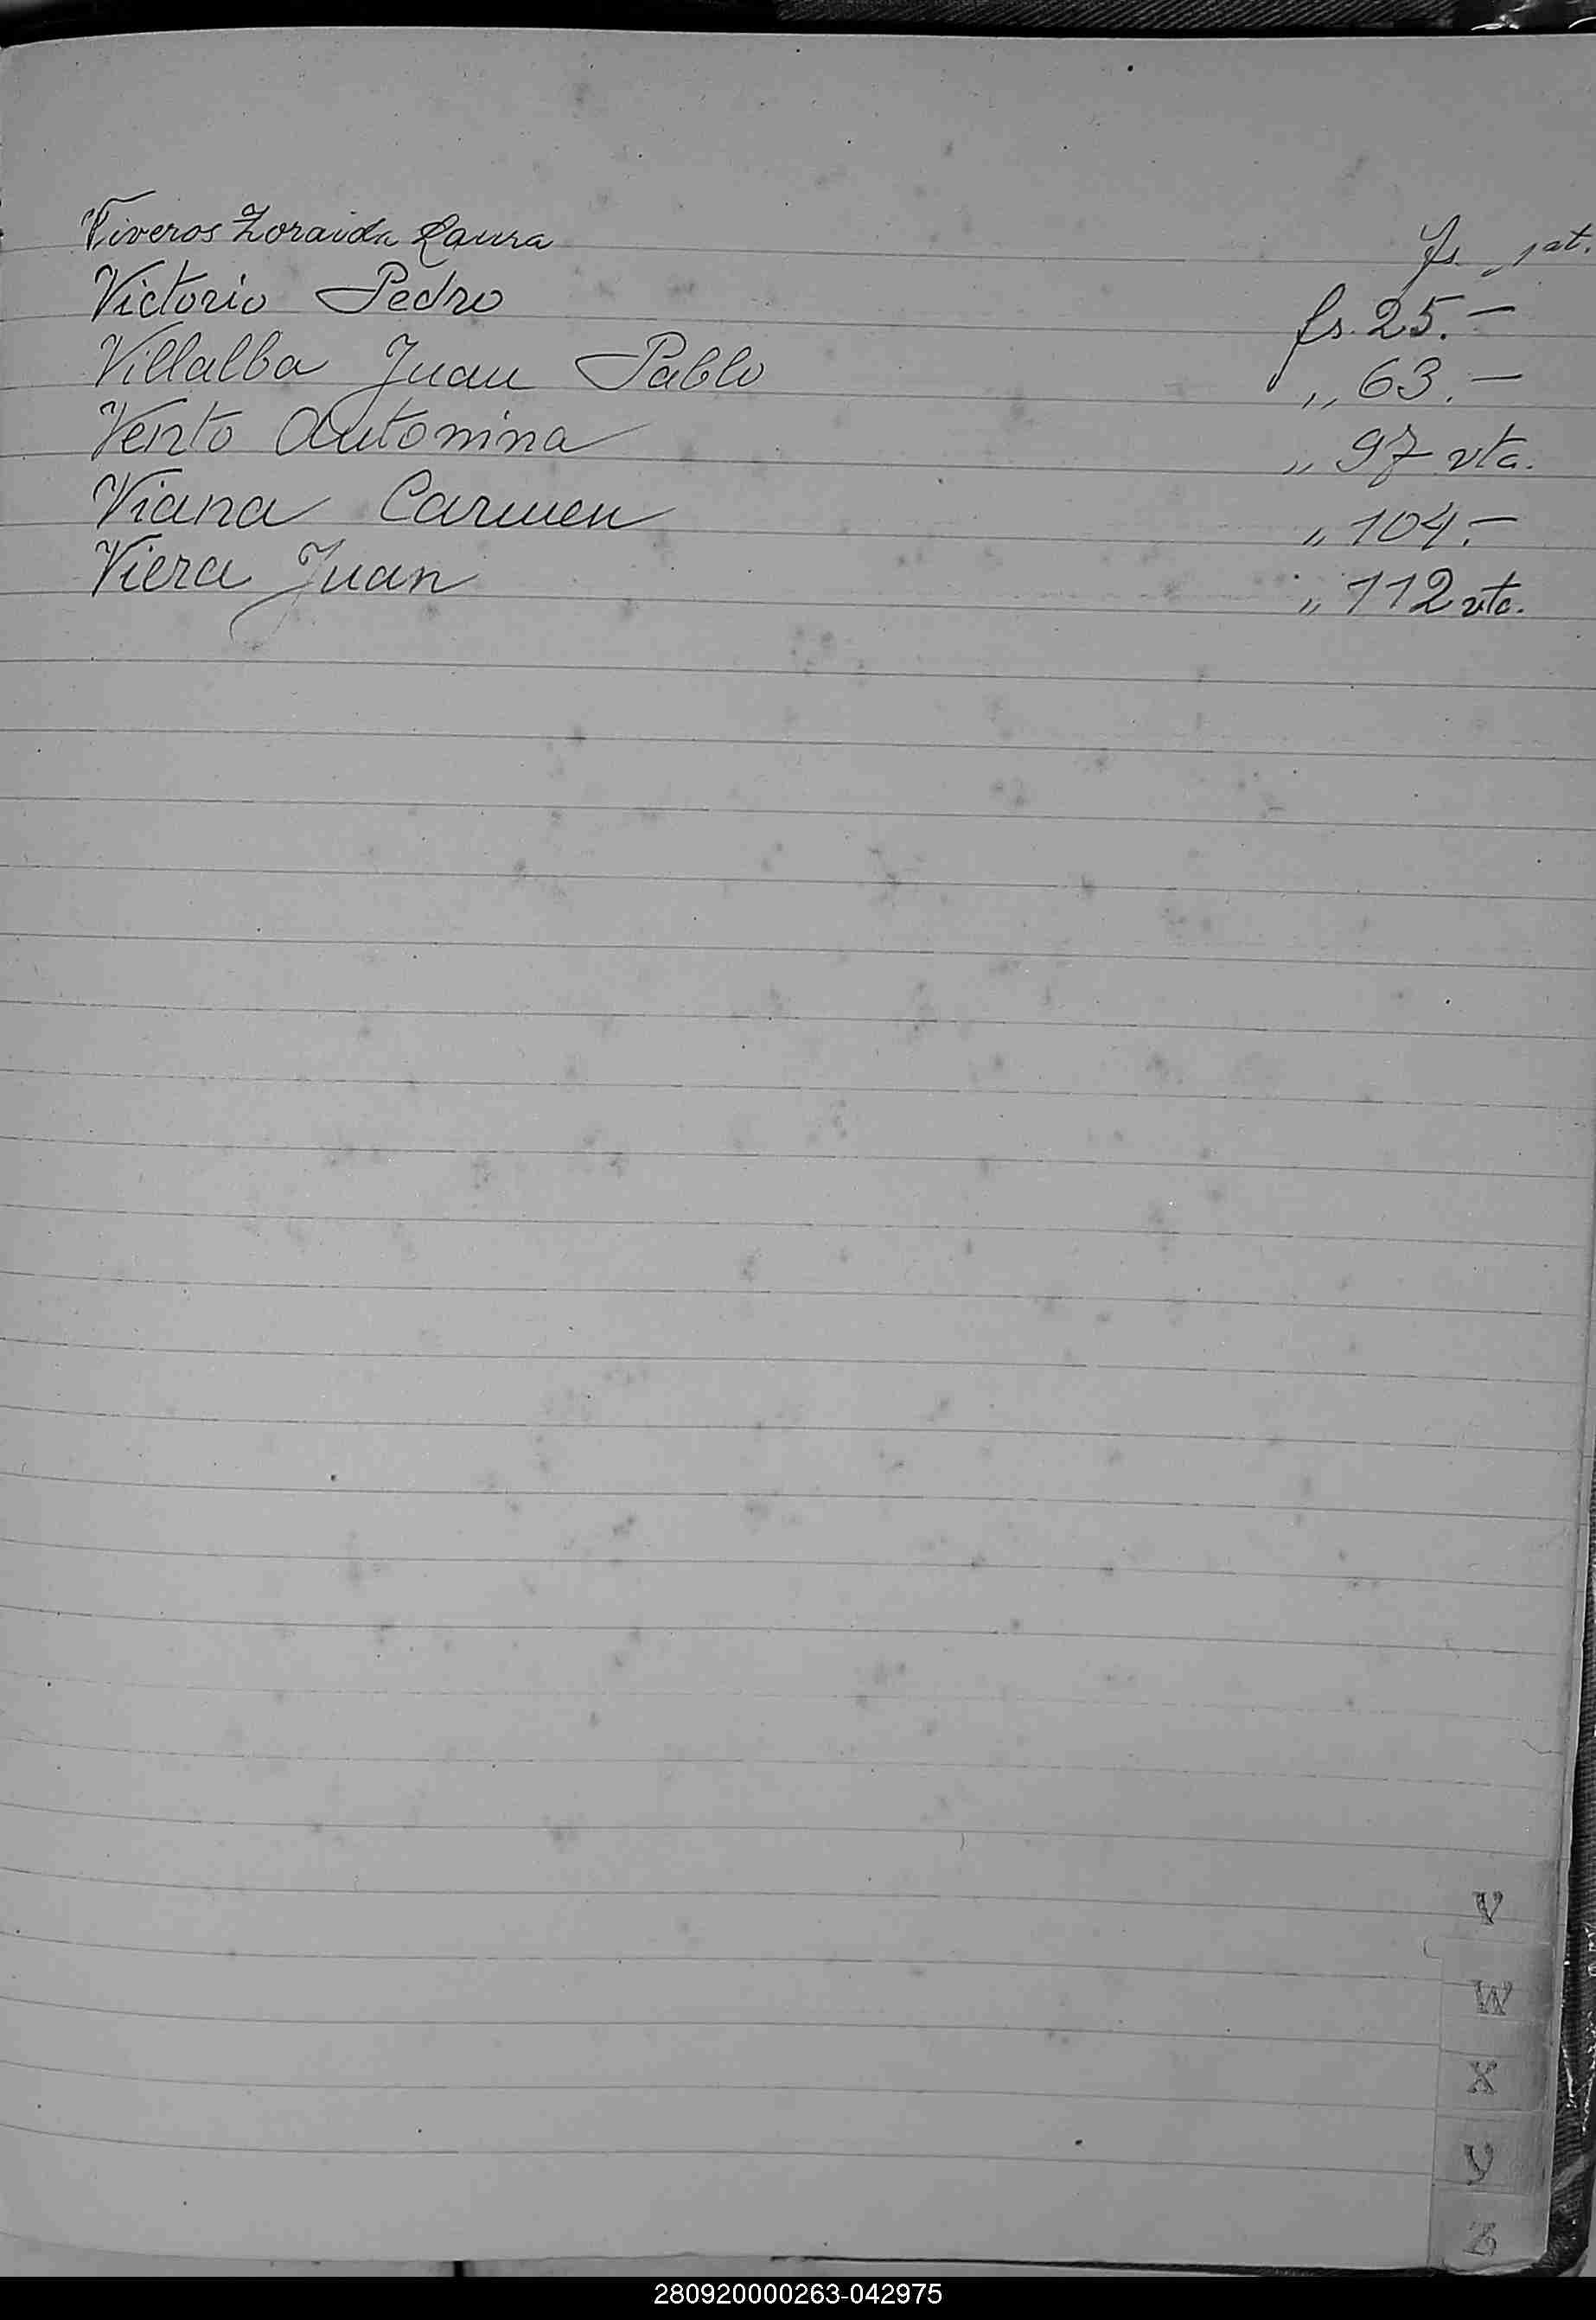 Viveros Zoraida Laura fs.
Victorio Pedro fs. 25.—
Villalba Juan Pablo „ 63.—
Vento Antonina „ 97 vta.
Viana Carmen „ 104.—
Viera Juan „ 112 vta.
V
W
X
Y
Z
280920000263-042975